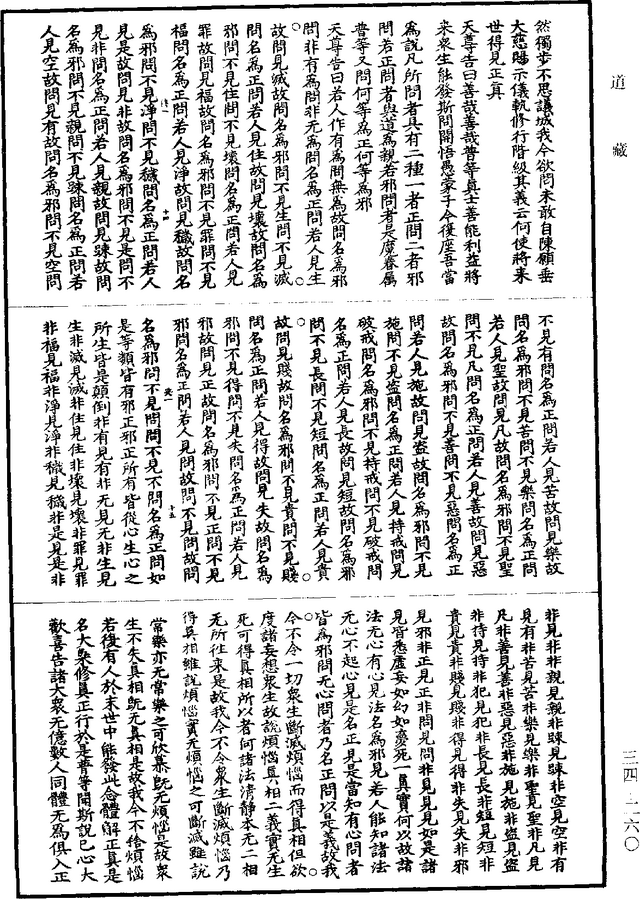 道藏
然獨步不思議城我今欲問未敢自陳願垂
大慈賜示儀軌修行階級其義云何使將來
世得見正真
天尊告曰善哉善哉普等真士善能利益將
來衆生能發斯問開悟愚蒙子令復座吾當
爲說凡所問者具有二種一者正問二者邪
問若正問者與道爲親若邪問者是魔眷屬
普等又問何等爲正何等爲邪
天尊告曰若人作有爲問無爲故問名爲邪
問非有爲問非无爲問名爲正問若人見生
故問見滅故問名爲邪問不見生問不見滅
問名爲正問若人見住故問見壞故問名爲
邪問不見住問不見壞問名爲正問若人見
罪故問見福故問名爲邪問不見罪問不見
福問名爲正問若人見淨故問見穢故問名
爲邪問不見淨問不見穢問名爲正問若人
見是故問見非故問名爲邪問不見是問不
見非問名爲正問若人見親故問見踈故問
名爲邪問不見親問不見踈問名爲正問若
人見空故問見有故問名爲邪問不見空問
不見有問名爲正問若人見苦故問見樂故
問名爲邪問不見苦問不見樂問名爲正問
若人見聖故問見凡故問名爲邪問不見聖
問不見凡問名爲正問若人見善故問見惡
故問名爲邪問不見善問不見惡問名爲正
問若人見施故問見盜故問名爲邪問不見
施問不見盜問名爲正問若人見持戒問見
破戒問名爲邪問不見持戒問不見破戒問
名爲正問若人見長故問見短故問名爲邪
問不見長問不見短問名爲正問若人見貴
故問見賤故問名爲邪問不見貴問不見賤
問名爲正問若人見得故問見失故問名爲
邪問不見得問不見失問名爲正問若人見
邪故問見正故問名爲邪問不見正問不見
邪問名爲正問若人見問故問不見問故問
名爲邪問不見問問不見不問名爲正問如
是等類皆有邪正邪正所有皆從心生心之
所生皆是顛倒非有見有非无見无非生見
生非滅見滅非住見住非壞見壞非罪見罪
非福見福非淨見淨非穢見穢非是見是非
非見非非親見親非踈見踈非空見空非有
見有非苦見苦非樂見樂非聖見聖非凡見
凡非善見善非惡見惡非施見施非盜見盜
非持見持非犯見犯非長見長非短見短非
貴見貴非賤見賤非得見得非失見失非邪
見邪非正見正非問見問非見見見如是諸
見皆悉虛妄如幻如變死一真實何以故諸
法无心有心見法名爲邪見若人能知諸法
无心不起心見是名正見是當知有心問者
皆爲邪問无心問者乃名正問以是義故我
今不令一切衆生斷滅煩惱而得真相但欲
度諸妄想衆生故說煩惱真相二義實无生
死可得真相所以者何諸法清靜本无二相
无所往來是故我今不令衆生斷滅煩惱乃
得真相雖說煩惱實无煩惱之可斷滅雖說
常樂亦无常樂之可欣慕旣无煩惱是故衆
生不失真相旣无真相是故我今不捨煩惱
若復有人於末世中能發此念體解正真是
名大乘修真正行於是普等聞斯說已心大
歡喜告諸大衆无億數人同體无爲俱入正
三四-二六〇